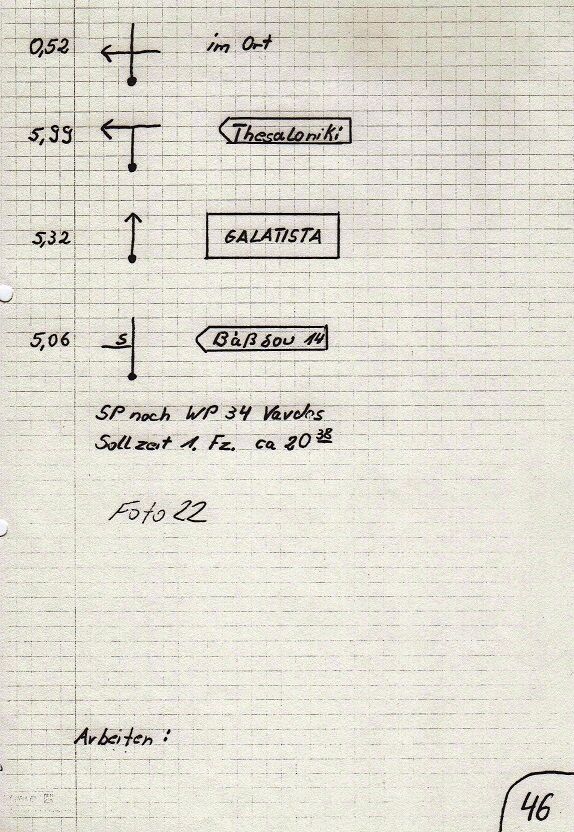 0,52 im Ort
5,99 Thesaloniki
5,32 GALATISTA
5,06 S Βάβδου 14
SP nach WP 34 Vavdos
Sollzeit 1. Fz. ca 20 38
Foto 22
Arbeiten :
46